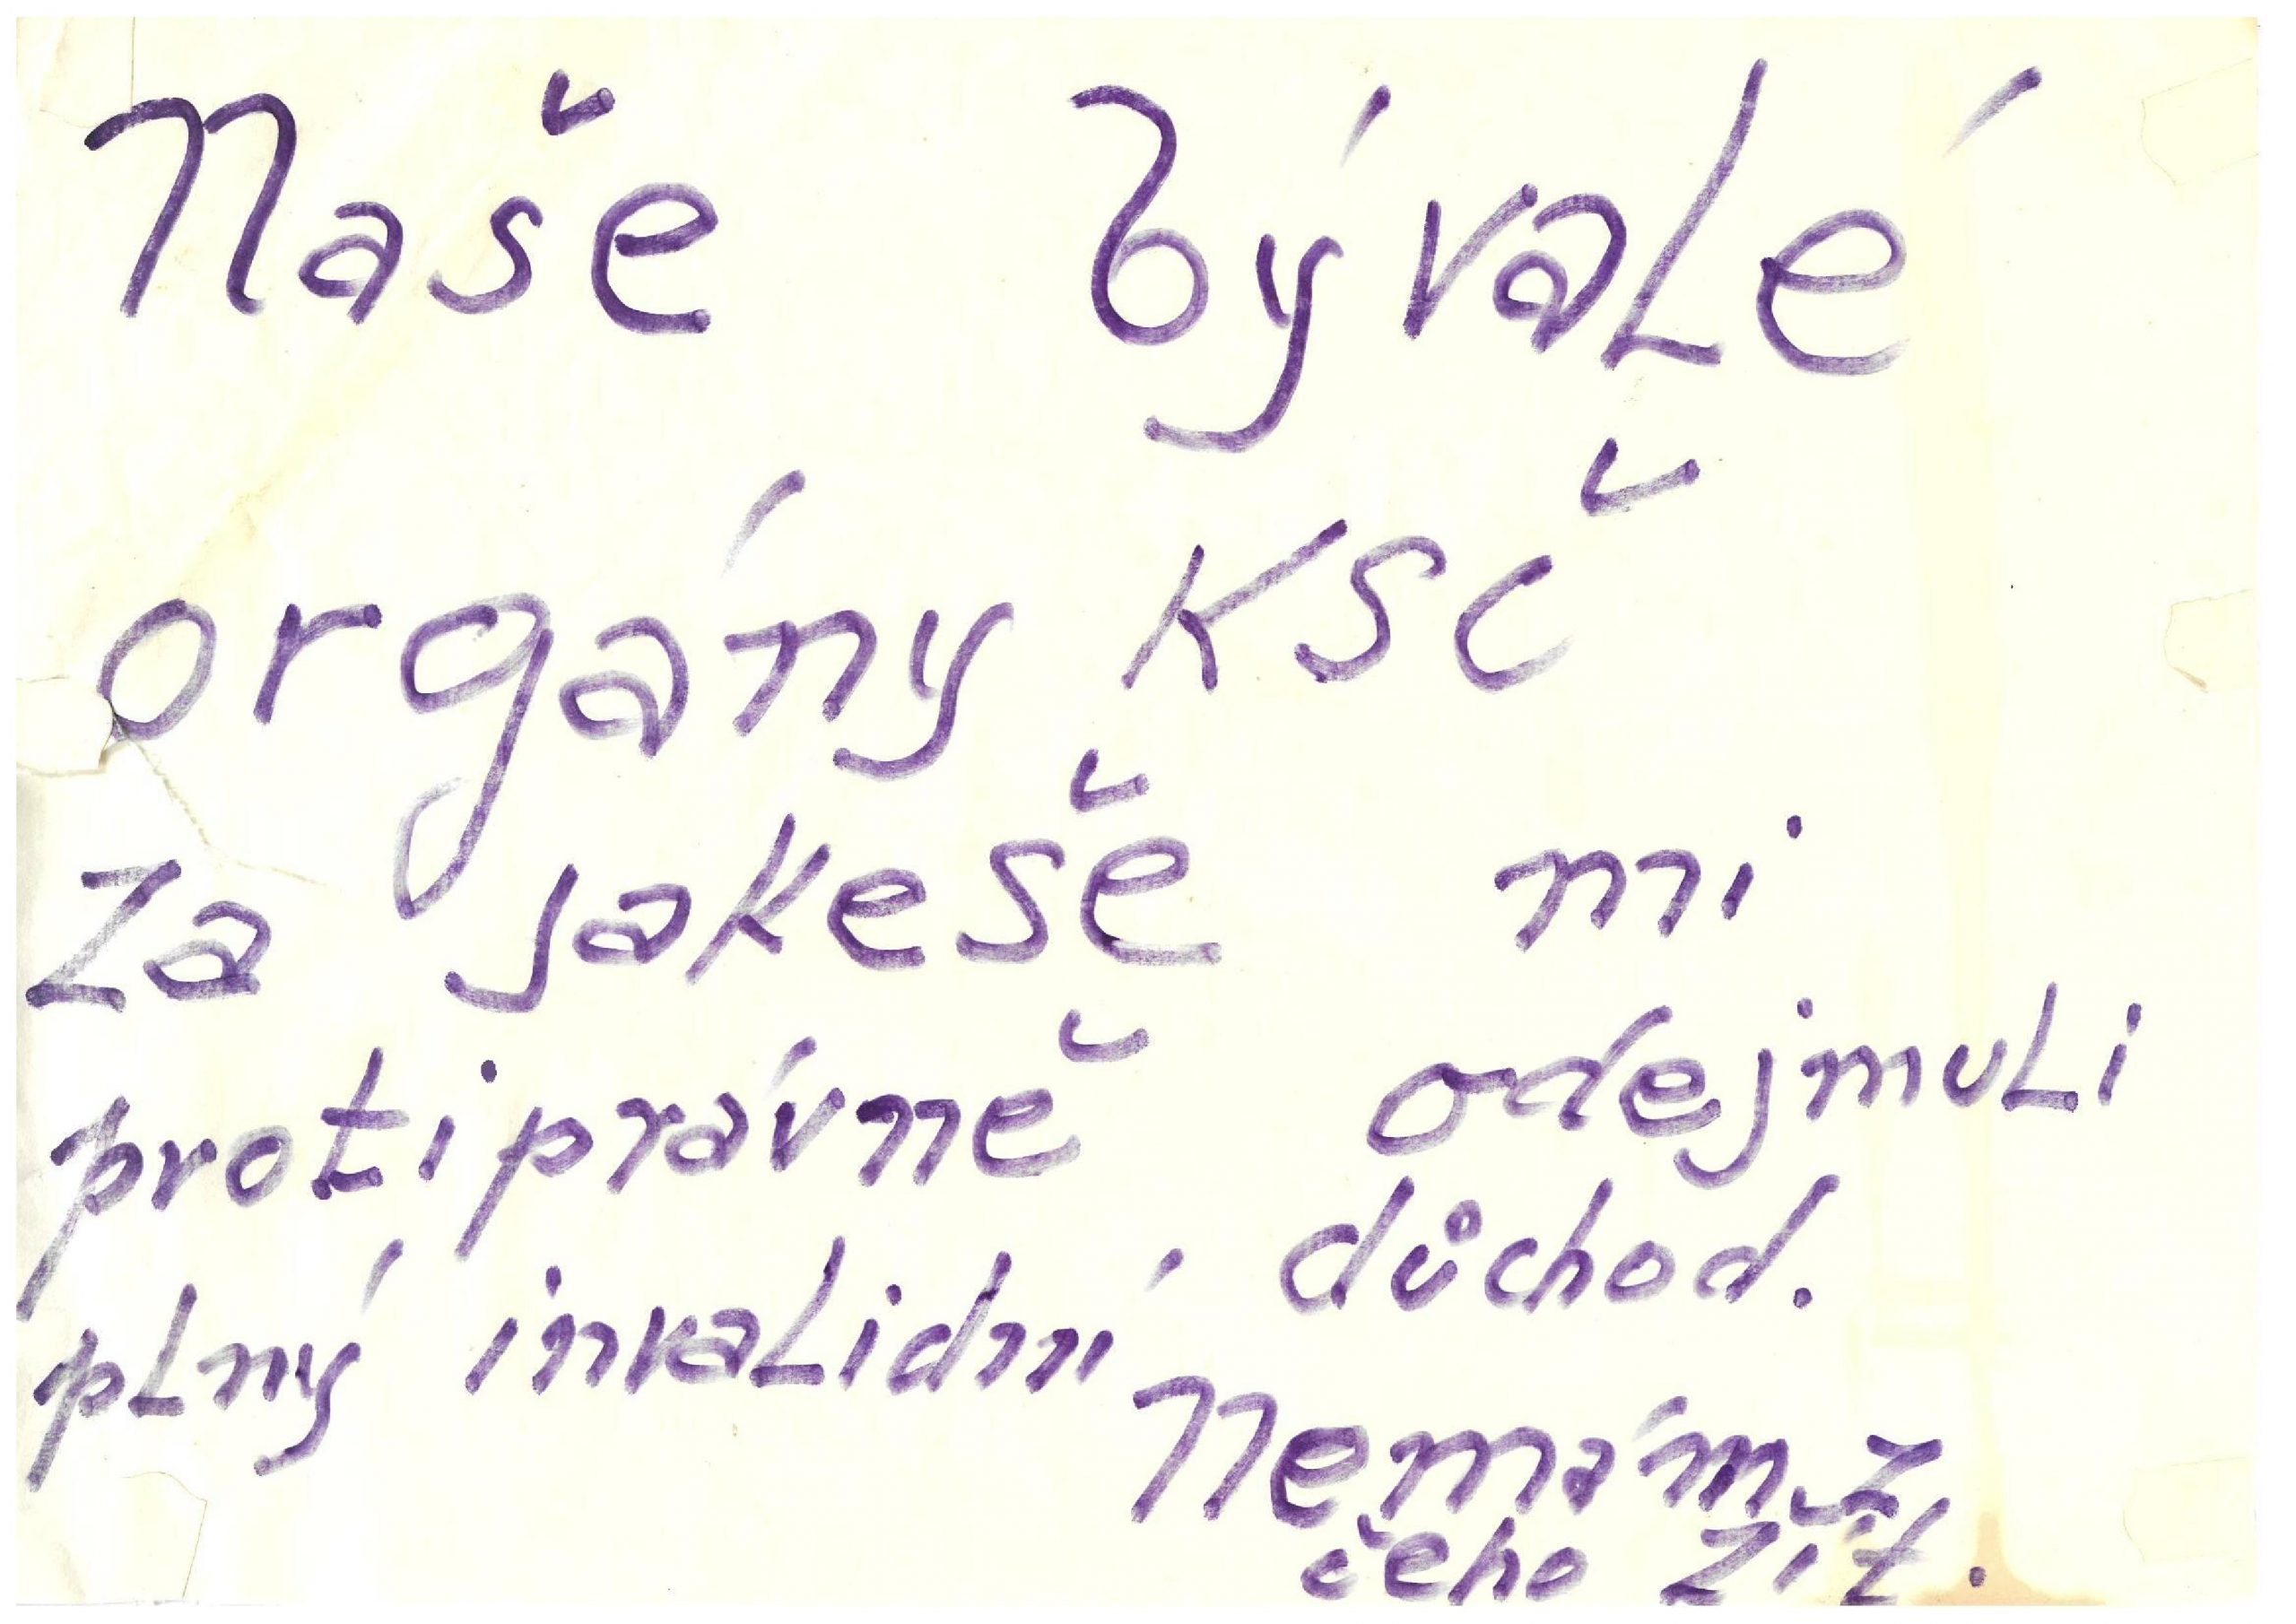 Naše bývalé
orgány KSČ
za jakeše mi
protiprávně odejmuli
plný invalidní důchod.
Nemám z
čeho žít.